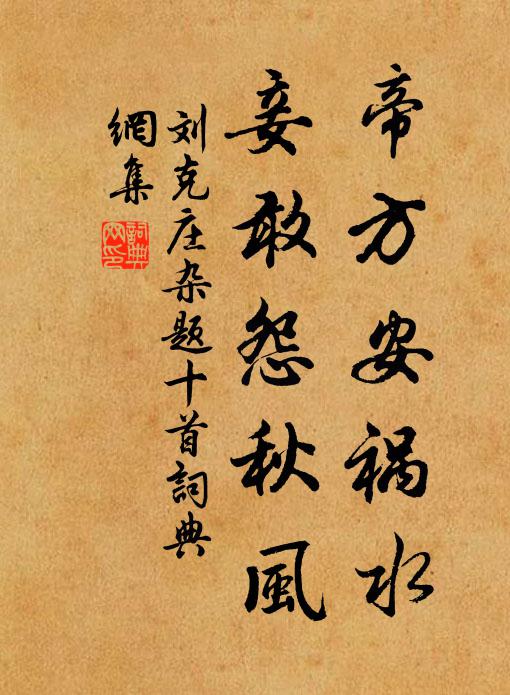 帝方安祸水
妾敢怨秋風
刘克庄杂题十首詞典
網集
詞典網印